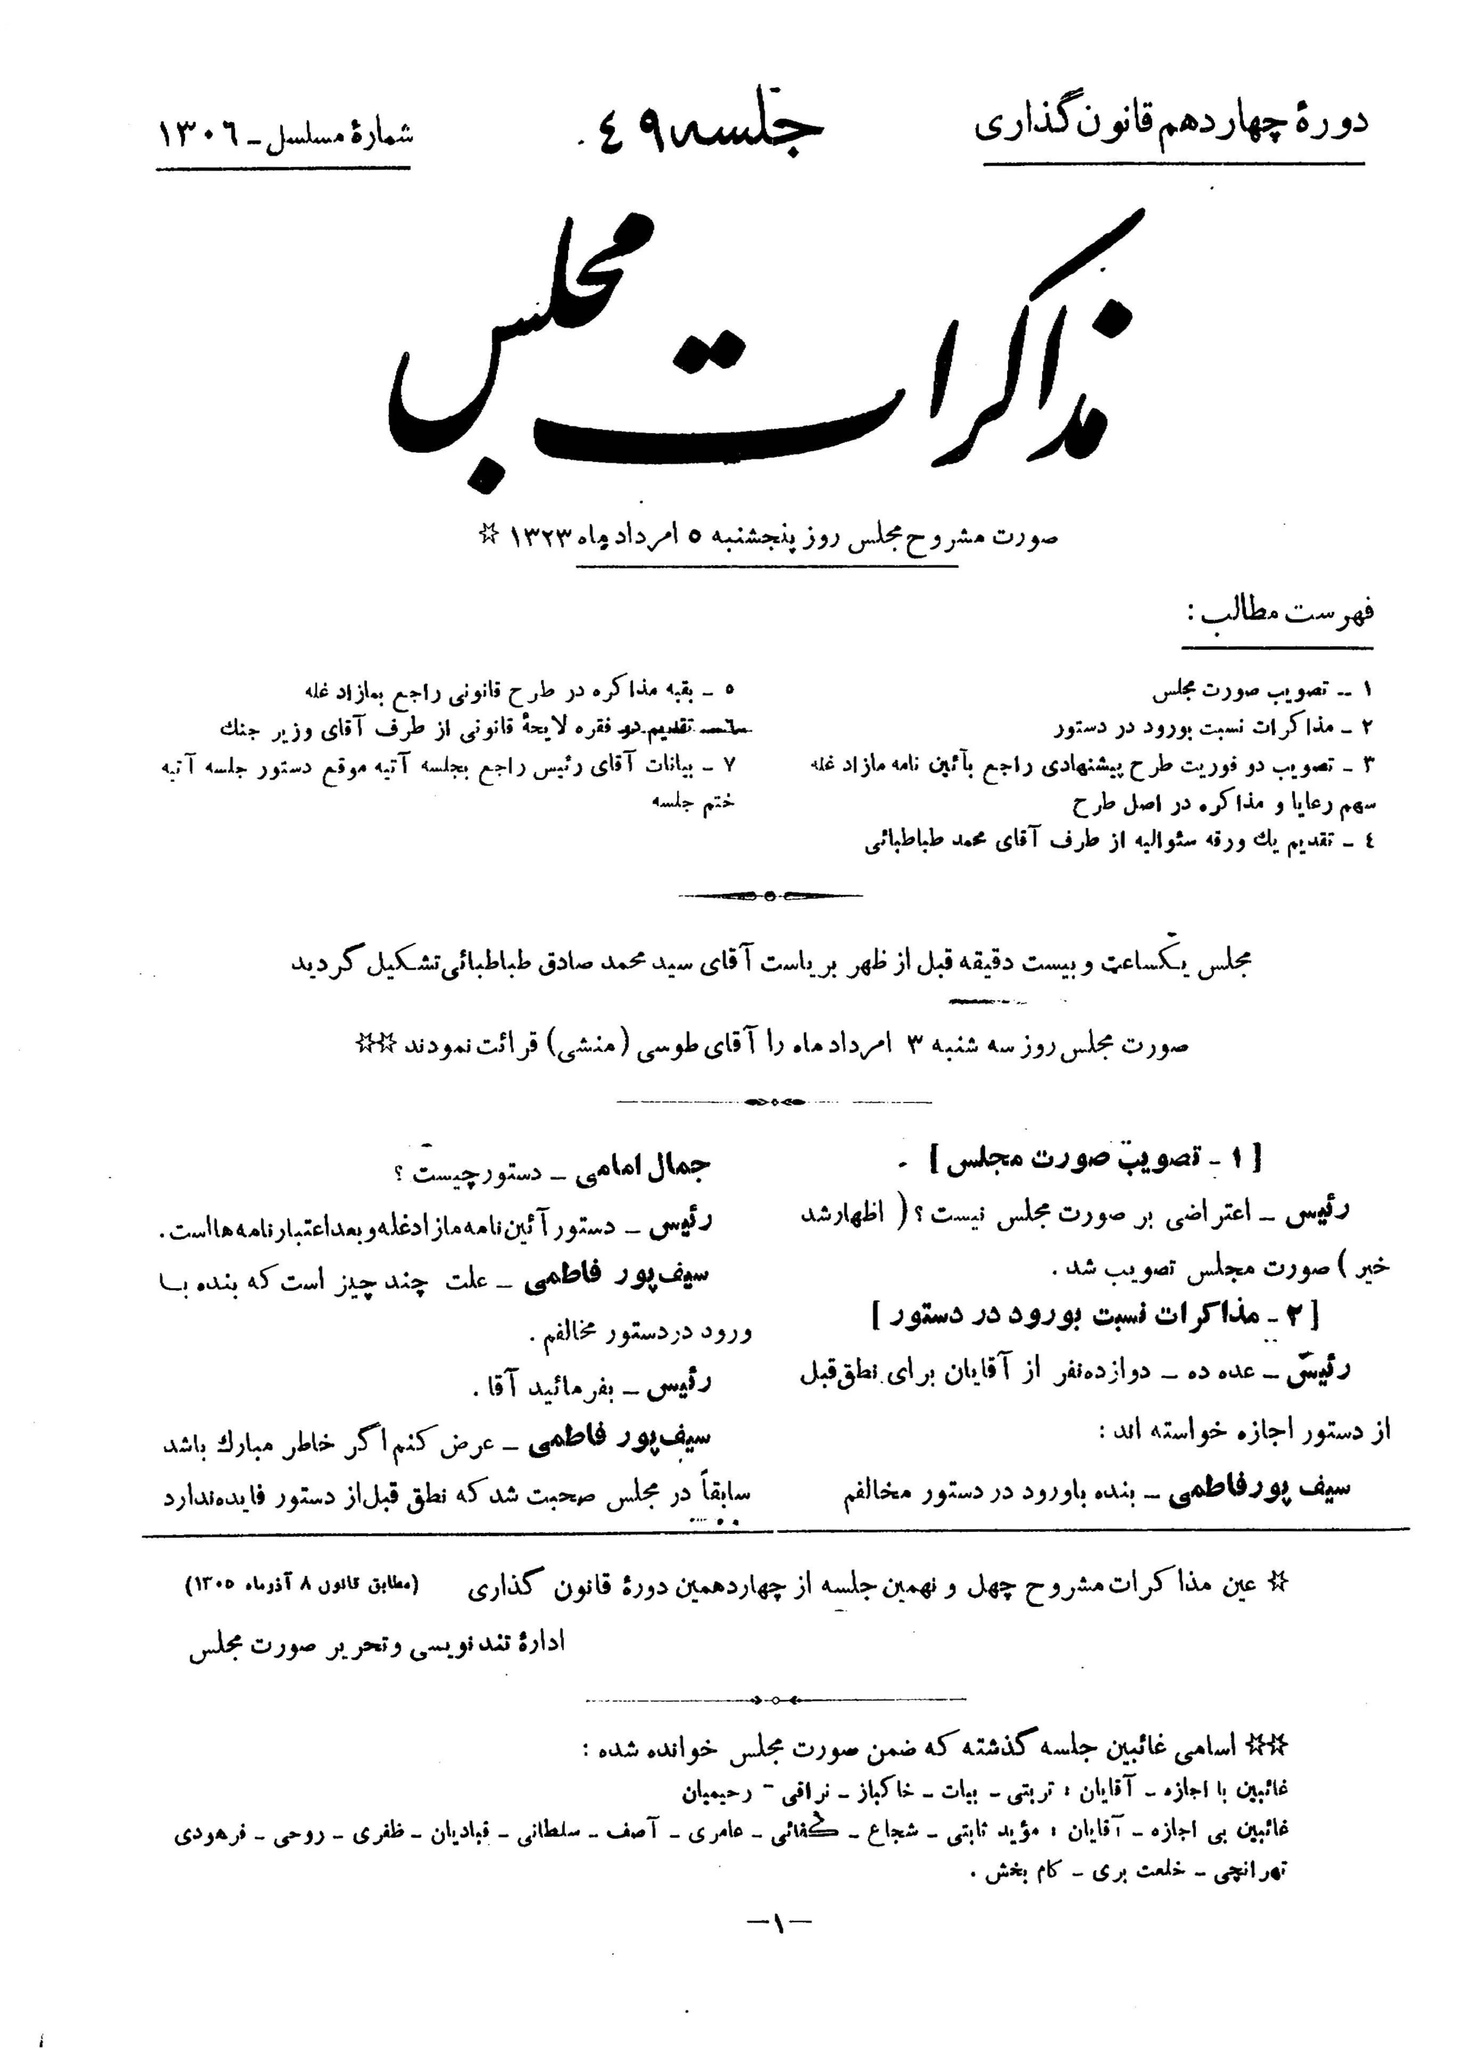 دورهٔ چهاردهم قانون گذاری
جلسه ٤٩
شمارهٔ مسلسل ـ ١٣٠٦
مذاکرات مجلس
صورت مشروح مجلس روز پنجشنبه ٥ امرداد ماه ١٣٢٣ ☆
فهرست مطالب :
١ ــ تصویب صورت مجلس
٢ ـ مذاکرات نسبت بورود در دستور
٣ ـ تصویب دو فوریت طرح پیشنهادی راجع بآئین نامه مازاد غله
سهم رعایا و مذاکره در اصل طرح
٤ ـ تقدیم یك ورقه سئوالیه از طرف آقای محمد طباطبائی
٥ ـ بقیه مذاکره در طرح قانونی راجع بمازاد غله
٦ ـ تقدیم دو فقره لایحهٔ قانونی از طرف آقای وزیر جنك
٧ ـ بیانات آقای رئیس راجع بجلسه آتیه موقع دستور جلسه آتیه
ختم جلسه
مجلس یکساعت و بیست دقیقه قبل از ظهر بریاست آقای سید محمد صادق طباطبائی تشکیل گردید
صورت مجلس روز سه شنبه ٣ امرداد ماه را آقای طوسی (منشی) قرائت نمودند ☆☆
[ ١ ـ تصویب صورت مجلس ]
رئیس ـ اعتراضی بر صورت مجلس نیست ؟ ( اظهار شد
خیر ) صورت مجلس تصویب شد .
[ ٢ ـ مذاکرات نسبت بورود در دستور ]
رئیس ـ عده ده ـ دوازده نفر از آقایان برای نطق قبل
از دستور اجازه خواسته اند :
سیف پور فاطمی ـ بنده باورود در دستور مخالفم
جمال امامی ـ دستور چیست ؟
رئیس ـ دستور آئین نامه مازاد غله و بعد اعتبار نامه ها است .
سیف پور فاطمی ـ علت چند چیز است که بنده بـا
ورود در دستور مخالفم .
رئیس ـ بفرمائید آقا .
سیف پور فاطمی ـ عرض کنم اگر خاطر مبارك باشد
سابقاً در مجلس صحبت شد که نطق قبل از دستور فایده ندارد
☆ عین مذاکرات مشروح چهل و نهمین جلسه از چهاردهمین دورهٔ قانون گذاری (مطابق قانون ٨ آذر ماه ١٣٠٥)
ادارهٔ تند نویسی و تحریر صورت مجلس
☆☆ اسامی غائبین جلسه گذشته که ضمن صورت مجلس خوانده شده :
غائبین با اجازه ـ آقایان : تربتی ـ بیات ـ خاکباز ـ نراقی ـ رحیمیان
غائبین بی اجازه ـ آقایان : مؤید ثابتی ـ شجاع ـ کفائی ـ عامری ـ آصف ـ سلطانی ـ قبادیان ـ ظفری ـ روحی ـ فرهودی
تهرانچی ـ خلعت بری ـ کام بخش .
ـ١ـ